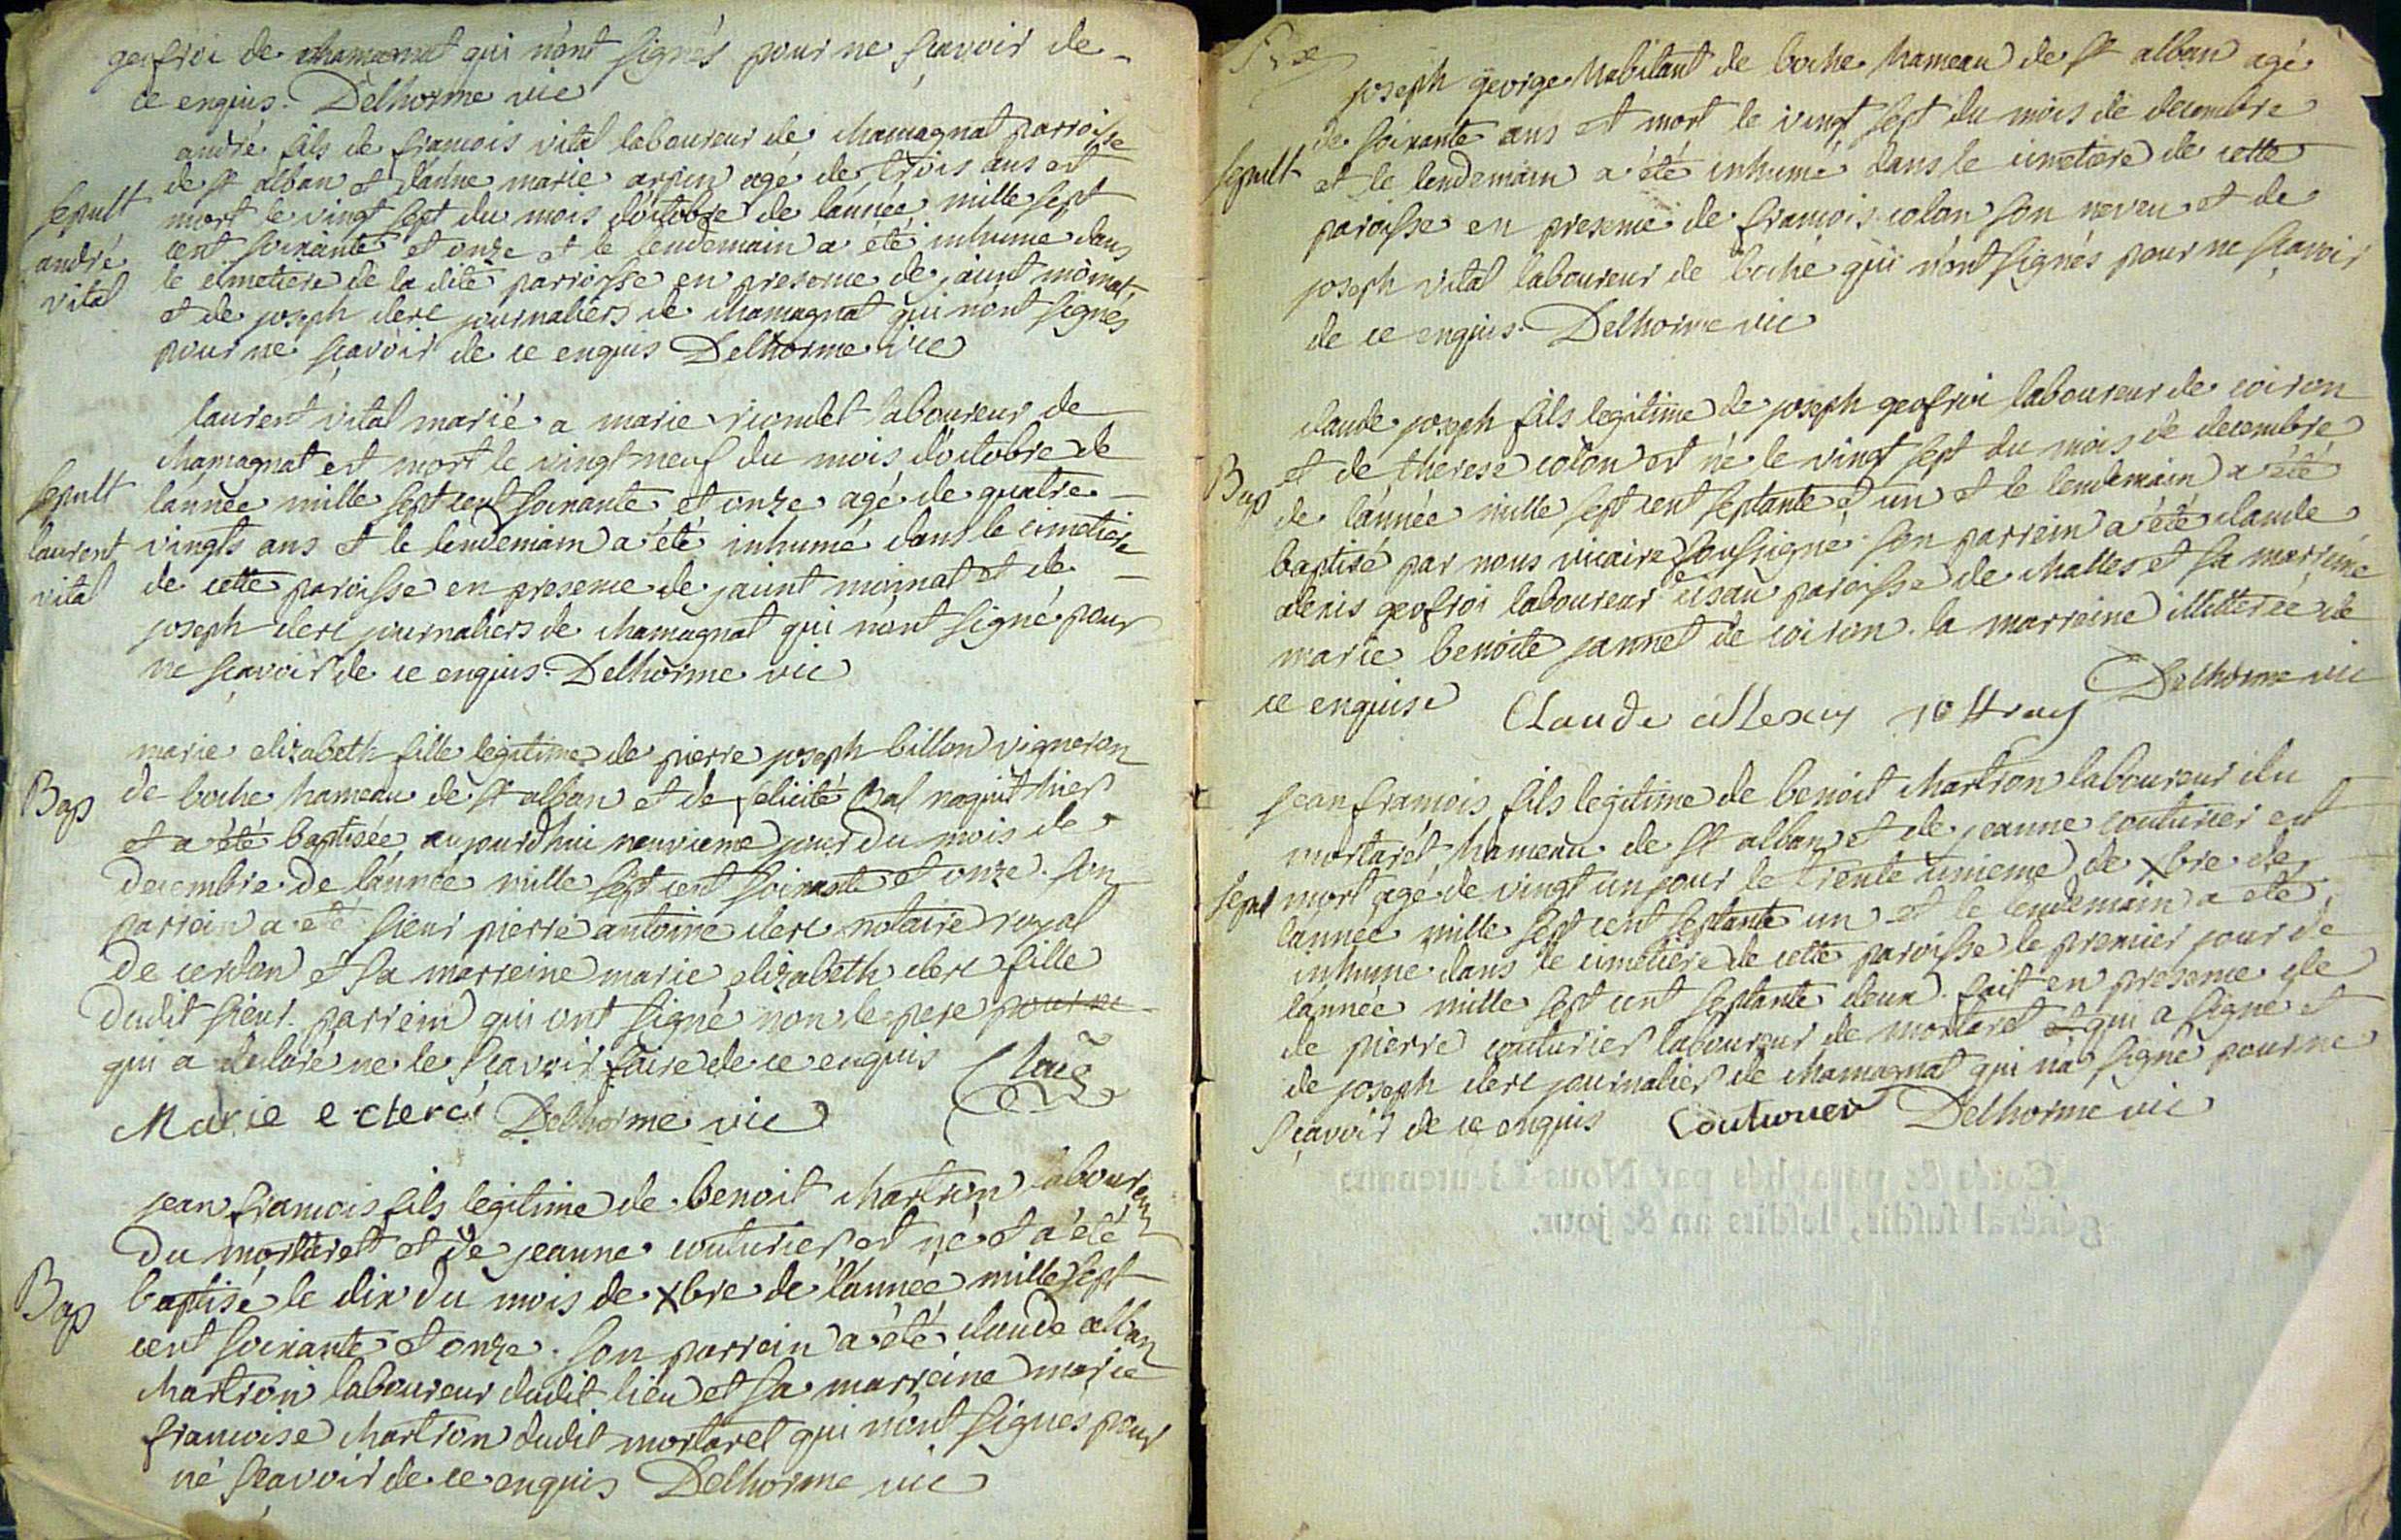 geofroi de chamagnat qui n'ont signés pour ne sçavoir de
ce enquis. Delhorme vic
andré fils de francois vital laboureur de chamagnat parroisse
de st alban et d'anne marie arpin agé de trois ans est
mort le vingt sept du mois d'octobre de l'année mille sept
cent soixante et onze et le lendemain a été inhumé dans
le cimetiere de la dite parroisse en presence de jaint moinat
et de joseph clerc journaliers de chamagnat qui n'ont signés
pour ne sçavoir de ce enquis Delhorme vic
sepult
andré
vital
laurent vital marié a marie riondet laboureur de
chamagnat est mort le vingt neuf du mois d'octobre de
l'année mille sept cent soixante et onze agé de quatre
vingts ans et le lendemain a été inhumé dans le cimetiere
de cette paroisse en presence de jaint moinat et de
joseph clerc journaliers de chamagnat qui n'ont signé pour
ne sçavoir de ce enquis. Delhorme vic
sepult
laurent
vital
marie elizabeth fille legitime de pierre joseph billon vigneron
de boche hameau de st alban et de felicité Bal naquit hier
et a été baptisée aujourdhui neuvieme jour du mois de
decembre de l'année mille sept cent soixante et onze. son
parrein a été sieur pierre antoine clerc notaire royal
de cerdon et sa marreine marie elizabeth clerc fille
dudit sieur parrein qui ont signé non le pere pour ne
qui a declaré ne le sçavoir faire de ce enquis
Marie e clerc Delhorme vic
Bap
jean francois fils legitime de benoit chartron laboureur
du mortaret et de jeanne couturier est né et a été
baptisé le dix du mois de xbre de l'année mille sept
cent soixante et onze. son parrein a été claude alban
chartron laboureur dudit lieu et sa marreine marie
francoise chartron dudit mortaret qui n'ont signés pour
ne sçavoir de ce enquis Delhorme vic
Bap
joseph george habitant de boche hameau de st alban agé
de soixante ans est mort le vingt sept du mois de decembre
et le lendemain a été inhumé dans le cimetiere de cette
paroisse en presence de francois colon son neveu et de
joseph vital laboureur de boche qui n'ont signés pour ne sçavoir
de ce enquis. Delhorme vic
sepult
claude joseph fils legitime de joseph geofroi laboureur de coiron
et de therese colon est né le vingt sept du mois de decembre
de l'année mille sept cent septante et un et le lendemain a été
baptisé par nous vicaire soussigné. son parrein a été claude
denis geofroi laboureur paroisse de challes et sa marreine
marie benoite jannet de coiron. la marreine illitterée de
ce enquise Delhorme vic
Claude
Bap
jean francois fils legitime de benoit chartron laboureur du
mortaret hameau de st alban et de jeanne couturier est
mort agé de vingt un jour le trente unieme de xbre de
l'année mille sept cent septante un et le lendemain a été
inhumé dans le cimetiere de cette paroisse le premier jour de
l'année mille sept cent septante deux. fait en presence de
de pierre couturier laboureur de mortaret et qui a signé et
de joseph clerc journalier de chamagnat qui n'a signé pour ne
sçavoir de ce enquis Couturier Delhorme vic
sepul